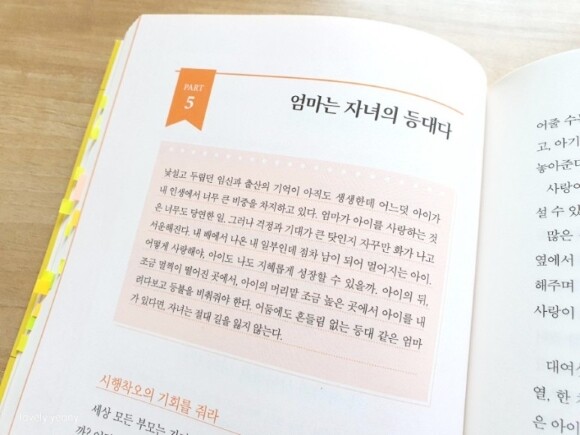 PART
5
엄마는 자녀의 등대다
낯설고 두렵던 임신과 출산의 기억이 아직도 생생한데 어느덧 아이가
내 인생에서 너무 큰 비중을 차지하고 있다. 엄마가 아이를 사랑하는 것
은 너무도 당연한 일. 그러나 걱정과 기대가 큰 탓인지 자꾸만 화가 나고
서운해진다. 내 배에서 나온 내 일부인데 점차 남이 되어 멀어지는 아이.
어떻게 사랑해야, 아이도 나도 지혜롭게 성장할 수 있을까. 아이의 뒤,
조금 멀찍이 떨어진 곳에서, 아이의 머리맡 조금 높은 곳에서 아이를 내
려다보고 등불을 비춰줘야 한다. 어둠에도 흔들림 없는 등대 같은 엄마
가 있다면, 자녀는 절대 길을 잃지 않는다.
시행착오의 기회를 줘라
세상 모든 부모는
어줄 수
고, 아기
놓아준다
사랑이
설 수 있
많은
옆에서
해주며
사랑이
대여
열, 한
은 아이